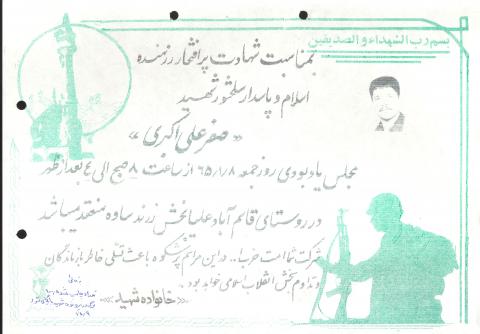 بسم رب الشهداء و الصدیقین
بمناسبت شهادت پر افتخار رزمنده
اسلام و پاسدار سلحشور شهید
«صفر علی اکبری»
مجلس یادبودی روز جمعه ۶۵/۱/۸ از ساعت ۸ صبح الی ۴ بعد از ظهر
در روستای قاسم آباد علیا بخش زرند ساوه منعقد میباشد
شرکت شما امت حزب ا.. در این مراسم پرشکوه باعث تسلی خاطر بازماندگان
و تداوم بخش انقلاب اسلامی خواهد بود.
«خانواده شهید»